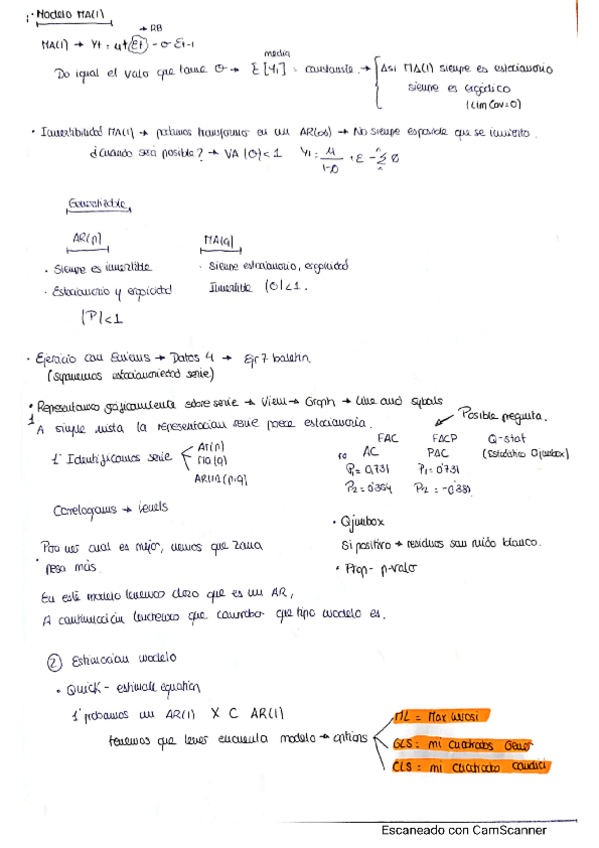 · Modelo MA(1)
→ RB
MA(1) → Yt = μ + Et - θ Et-1
media
Da igual el valor que tome θ → E[Yt] = constante. → Así MA(1) siempre es estacionario
siempre es ergódico
(lim Cov=0)
· Invertibilidad MA(1) → podemos transformar en un AR(∞) → No siempre es posible que se invierta.
¿Cuando será posible? → VA |θ| < 1 Yt =
Generalizable
AR(p)
MA(q)
· Siempre es invertible
· Siempre estacionario, ergodicidad
· Estacionario y ergodicidad
Invertible |θ|<1.
|P|<1
· Ejercicio con Eviews → Datos 4 → Ejr 7 boletín
(suponemos estacionariedad serie)
· Representamos gráficamente sobre serie → View → Graph → Line and symbols
Posible pregunta.
1 A simple vista la representacion serie parece estacionaria.
FAC FACP Q-stat
1º Identificamos serie
AR(p)
MA(q)
ARMA(p,q)
AC PAC (Estadístico Qjunbox)
P1=0,731 P1=0'731
P2=0'354 P2=-0'381
Correlograms → Levels
· Qjunbox
Para ver cual es mejor, vemos que zona
Si positivo → residuos son ruido blanco.
pesa más.
· Prop- p-valor
En este modelo tenemos claro que es un AR,
A continuación tenemos que comprobar que tipo modelo es.
② Estimacion modelo
· Quick - estimate equation
1º probamos un AR(1) X C AR(1)
ML = Max verosi
tenemos que tener encuenta modelo → options
GLS = mi cuadrados Gener
CLS = mi cuadrado condici
Escaneado con CamScanner